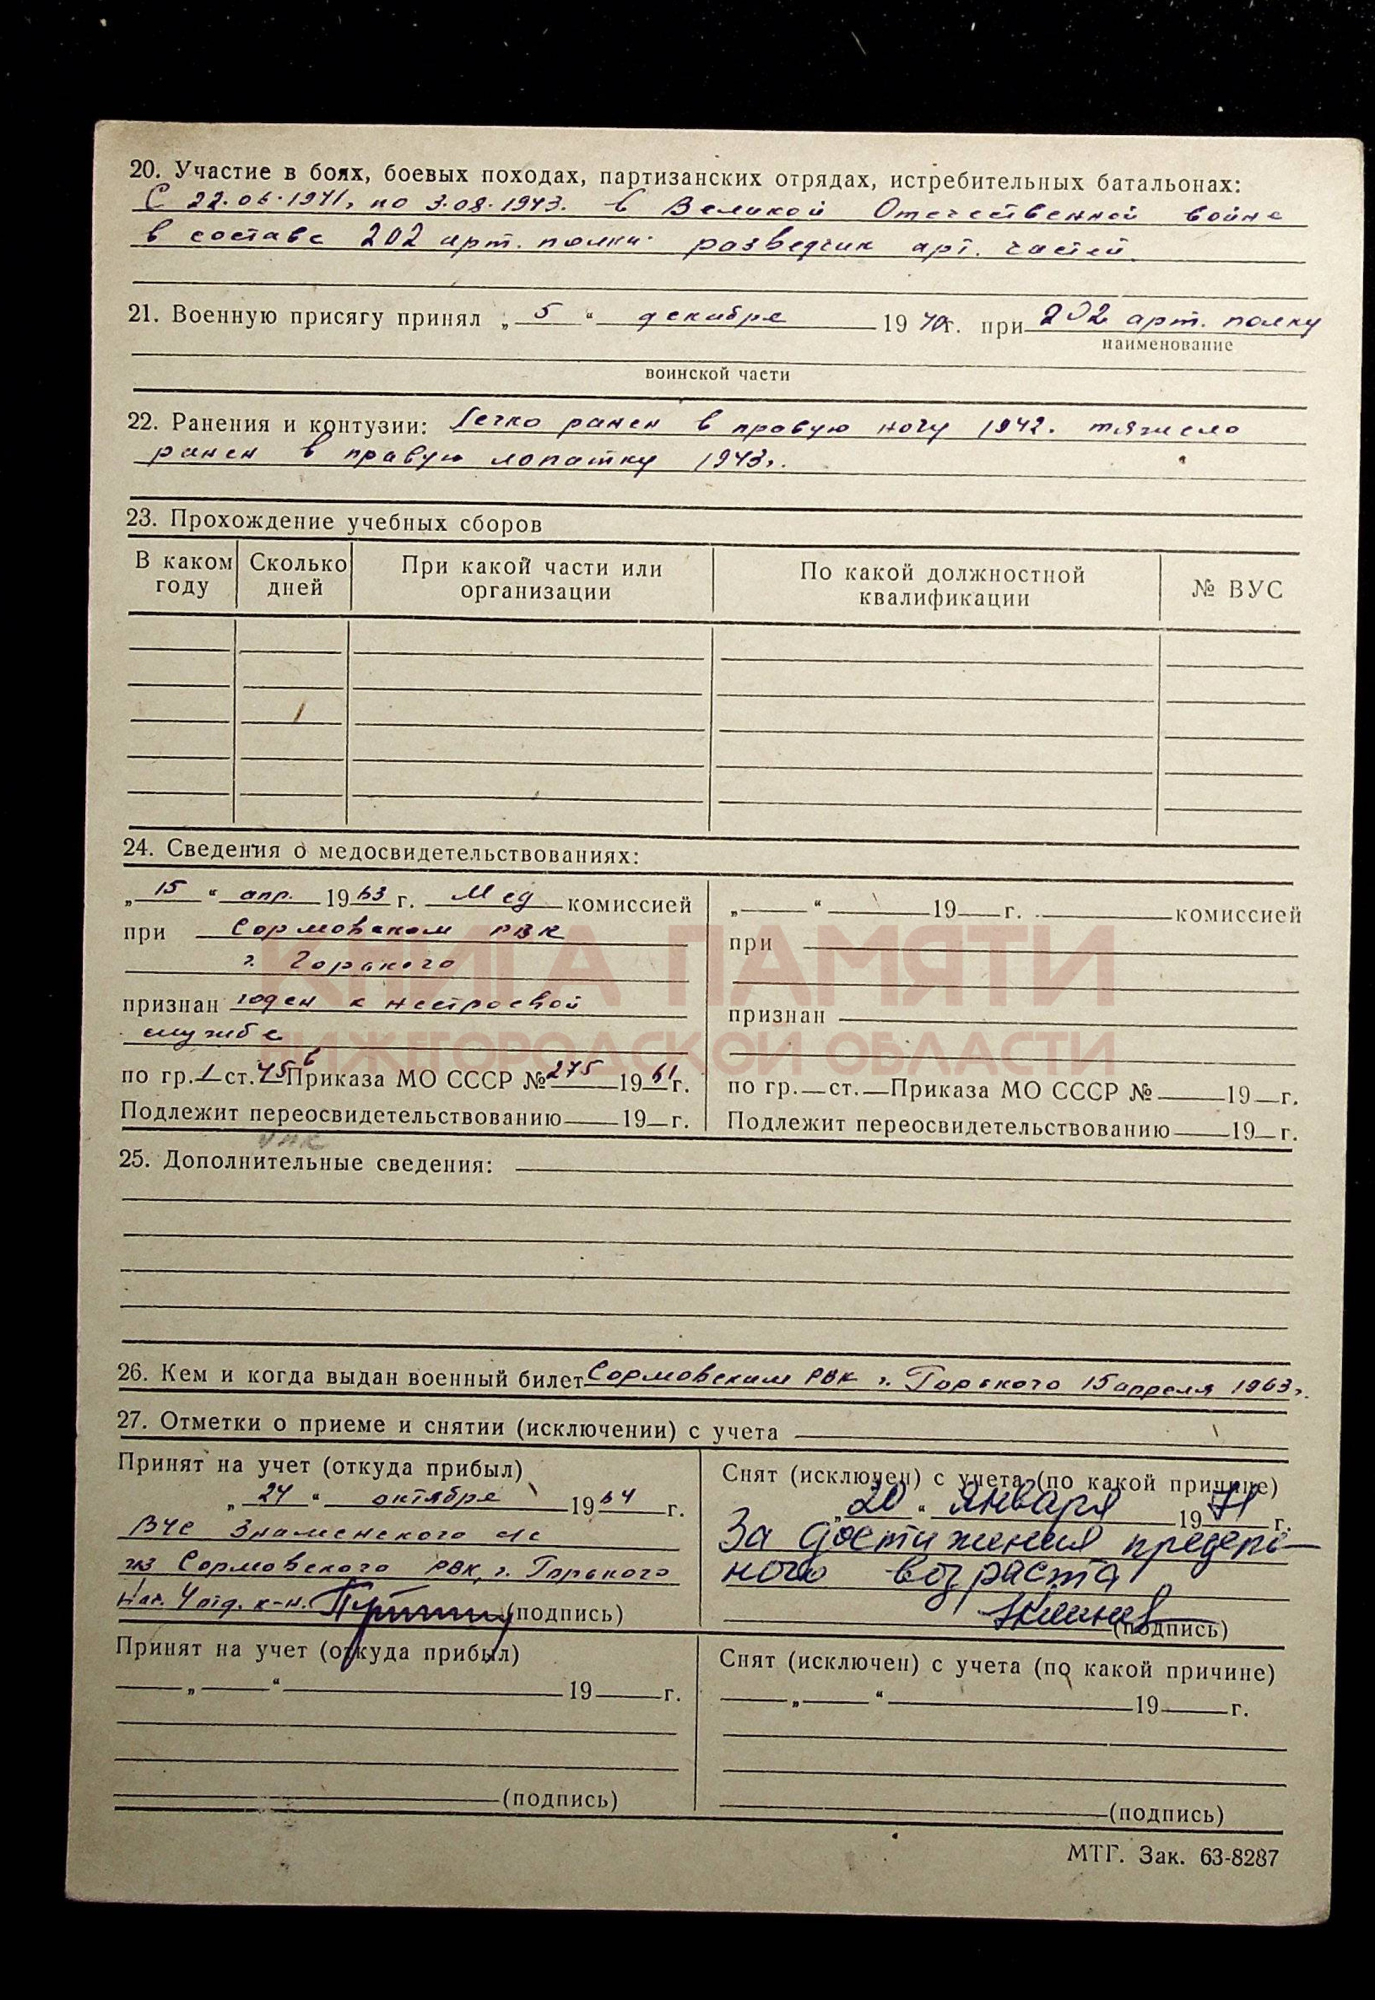 20. Участие в боях, боевых походах, партизанских отрядах, истребительных батальонах:
С 22.06.1941, по 3.08.1943. в Великой Отечественной войне
в составе 202 арт. полка. разведчик арт. частей.
21. Военную присягу принял „ 5 “ декабря 1940г. при 202 арт. полку
наименование
воинской части
22. Ранения и контузии: Легко ранен в правую ногу 1942. тяжело
ранен в правую лопатку 1943г.
23. Прохождение учебных сборов
В каком году Сколько дней При какой части или организации По какой должностной квалификации № ВУС
24. Сведения о медосвидетельствованиях:
„ 15 “ апр. 1963 г. Мед комиссией
при Сормовском РВК
г. Горького
признан годен к нестроевой
службе
по гр. 1 ст. 45в Приказа МО СССР № 275 1961г.
Подлежит переосвидетельствованию 19 г.
„ “ 19 г. комиссией
при
признан
по гр. ст. Приказа МО СССР № 19 г.
Подлежит переосвидетельствованию 19 г.
КНИГА ПАМЯТИ
НИЖЕГОРОДСКОЙ ОБЛАСТИ
25. Дополнительные сведения:
26. Кем и когда выдан военный билет Сормовским РВК г. Горького 15 апреля 1963г.
27. Отметки о приеме и снятии (исключении) с учета
Принят на учет (откуда прибыл)
„ 24 “ октября 1964 г.
ВУС Знаменского с/с
из Сормовского РВК, г. Горького
Нач. 4 отд. к-н. (подпись)
Снят (исключен) с учета (по какой причине)
„ 20 “ января 1971 г.
За достижения предель-
ного возраста
(подпись)
Принят на учет (откуда прибыл)
„ “ 19 г.
(подпись)
Снят (исключен) с учета (по какой причине)
„ “ 19 г.
(подпись)
МТГ. Зак. 63-8287